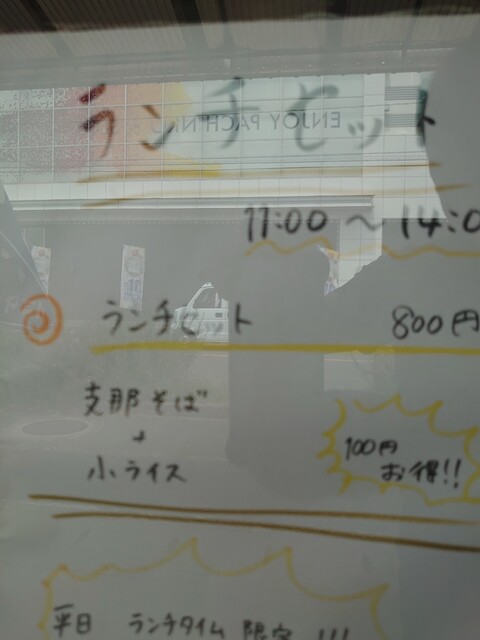 ランチセット
ENJOY PACHINK
11:00 ～ 14:0
ランチセット 800円
支那そば
+
小ライス
100円
お得!!
平日 ランチタイム 限定 !!!